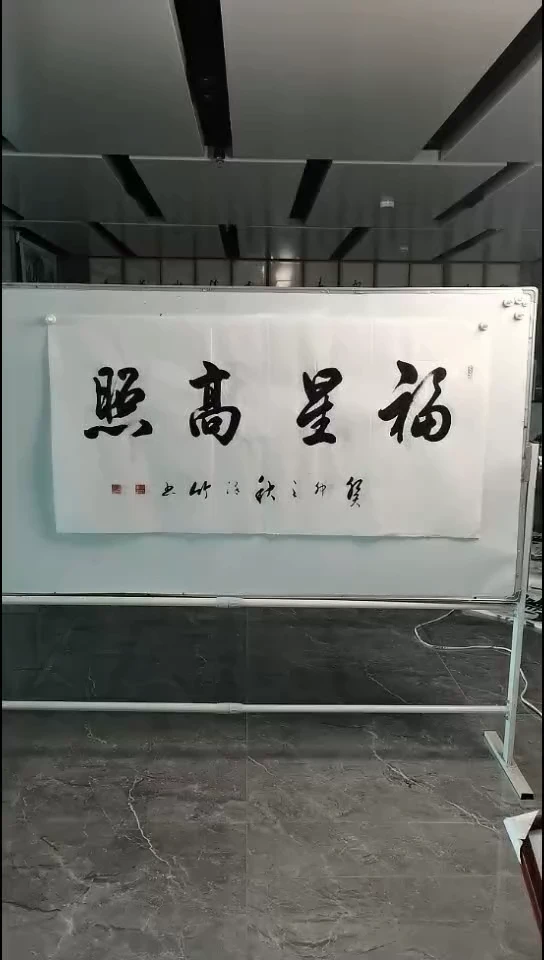 福星高照
癸卯之秋 竹书